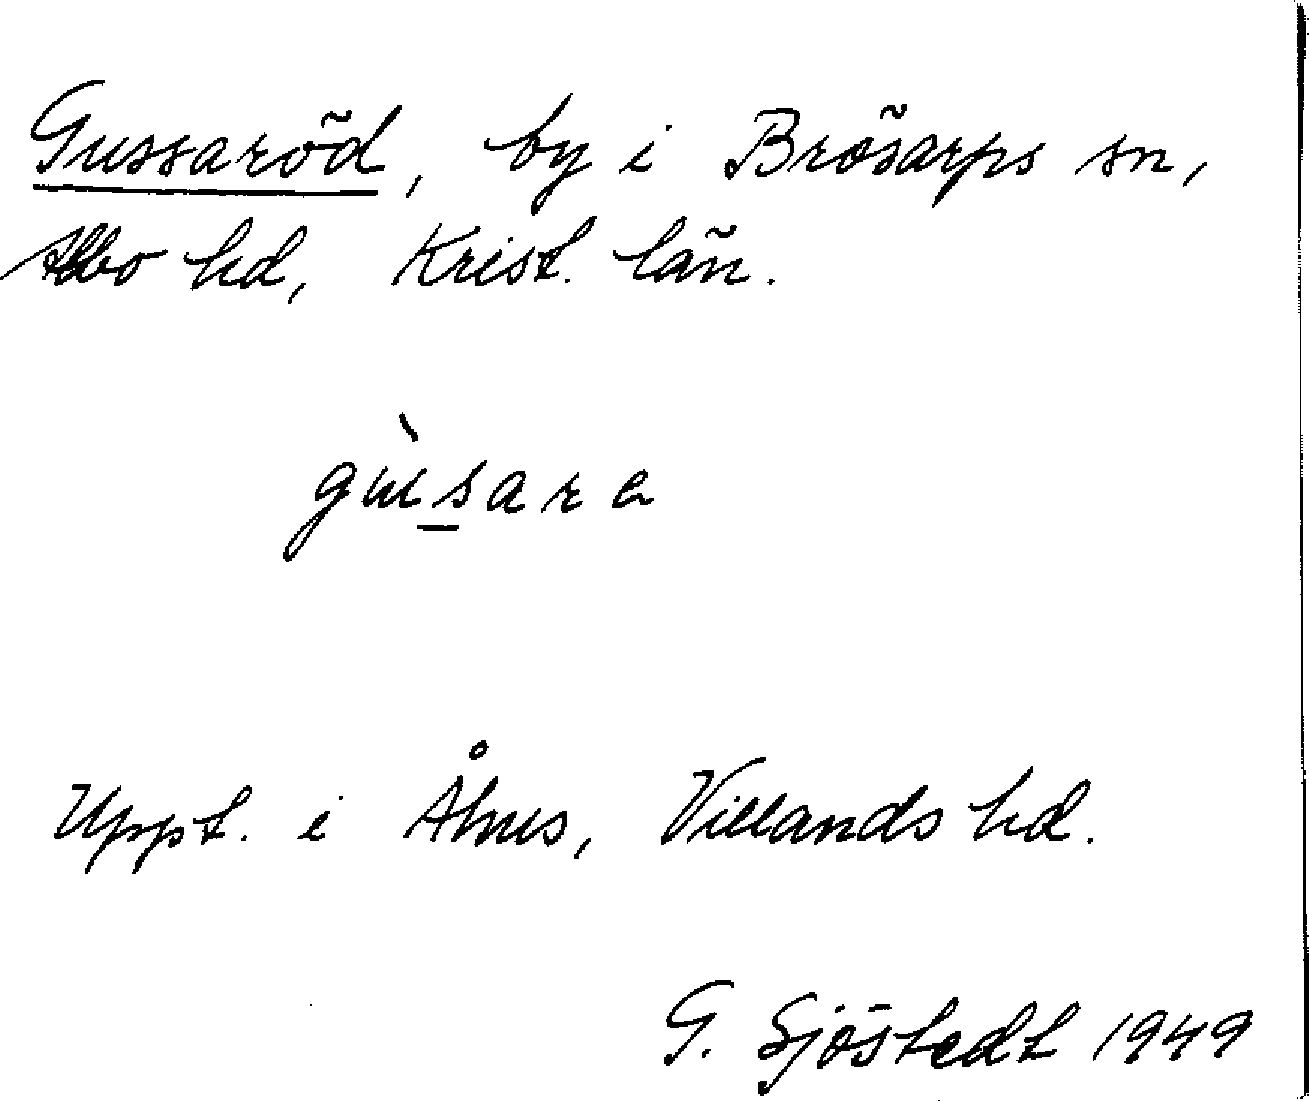 Gussaröd, by i Brösarps sn,
Albo hd, Krist. län.
gùsara
Uppt. i Åhus, Villands hd.
G. Sjöstedt 1949